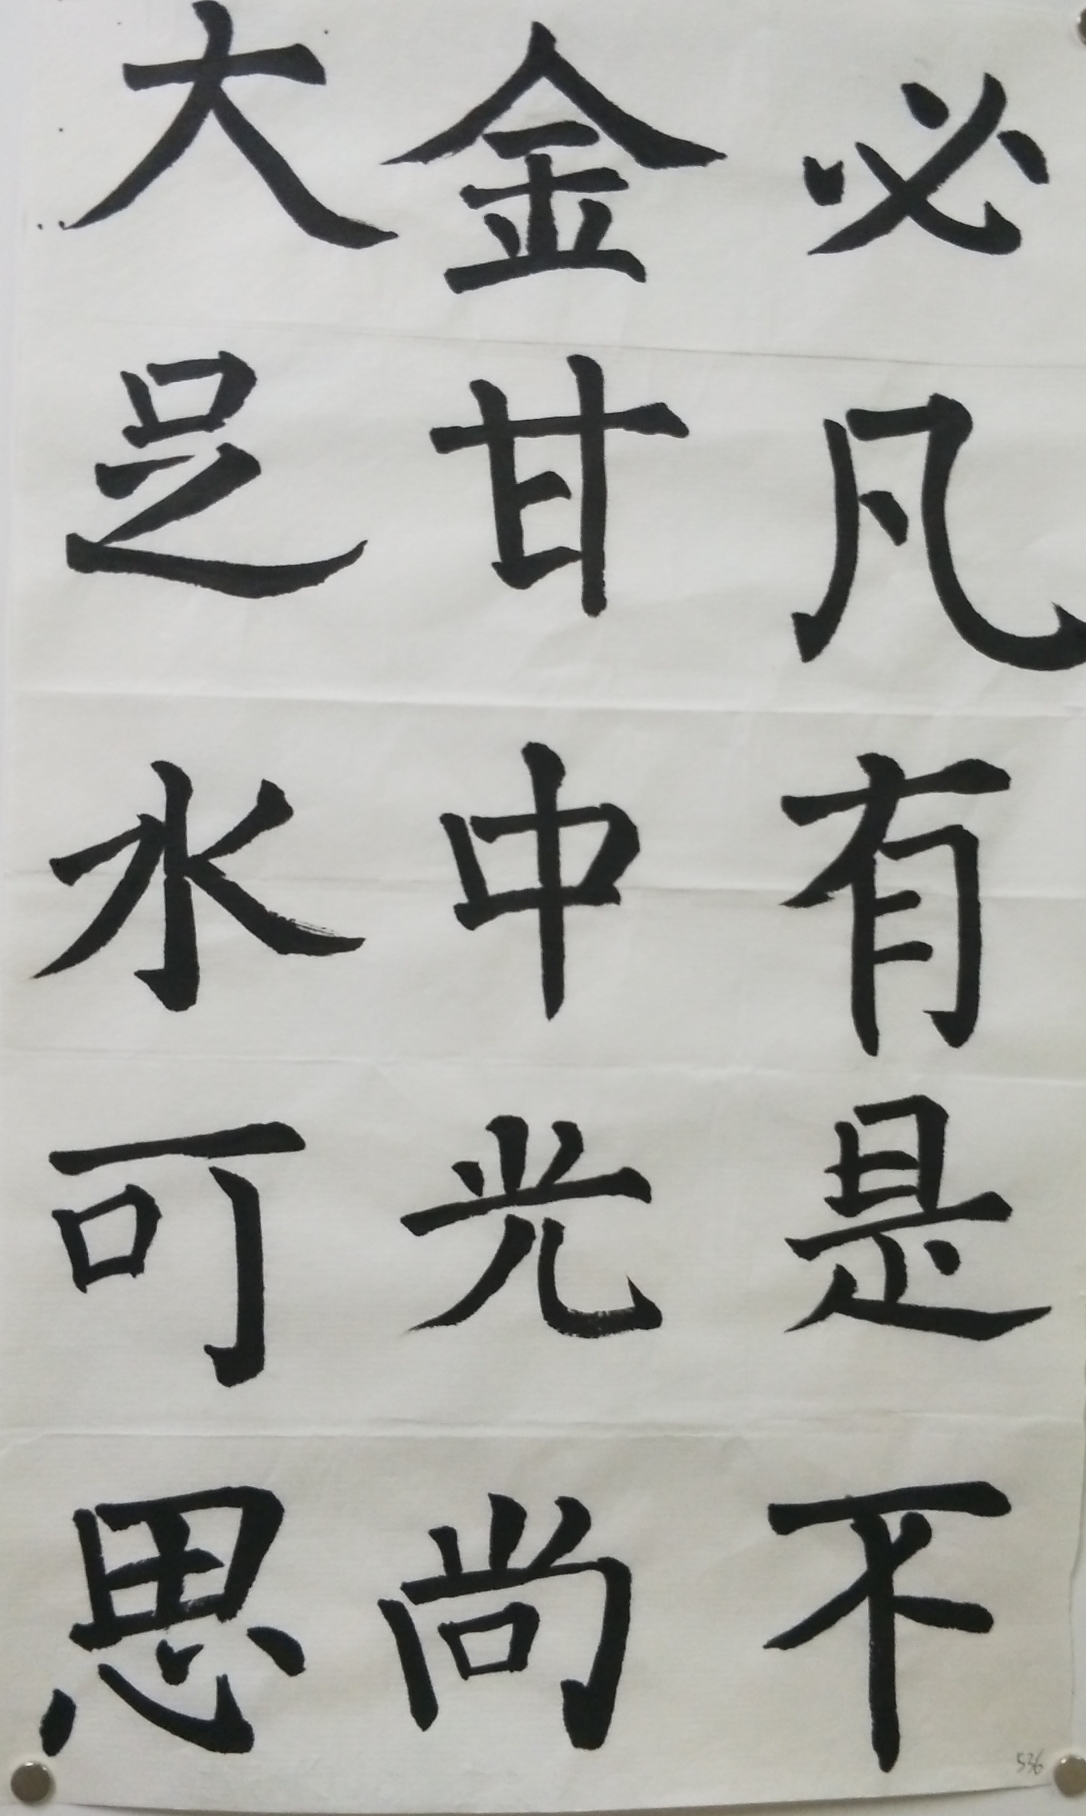 必凡有是不
金甘中光尚
大足水可思
536